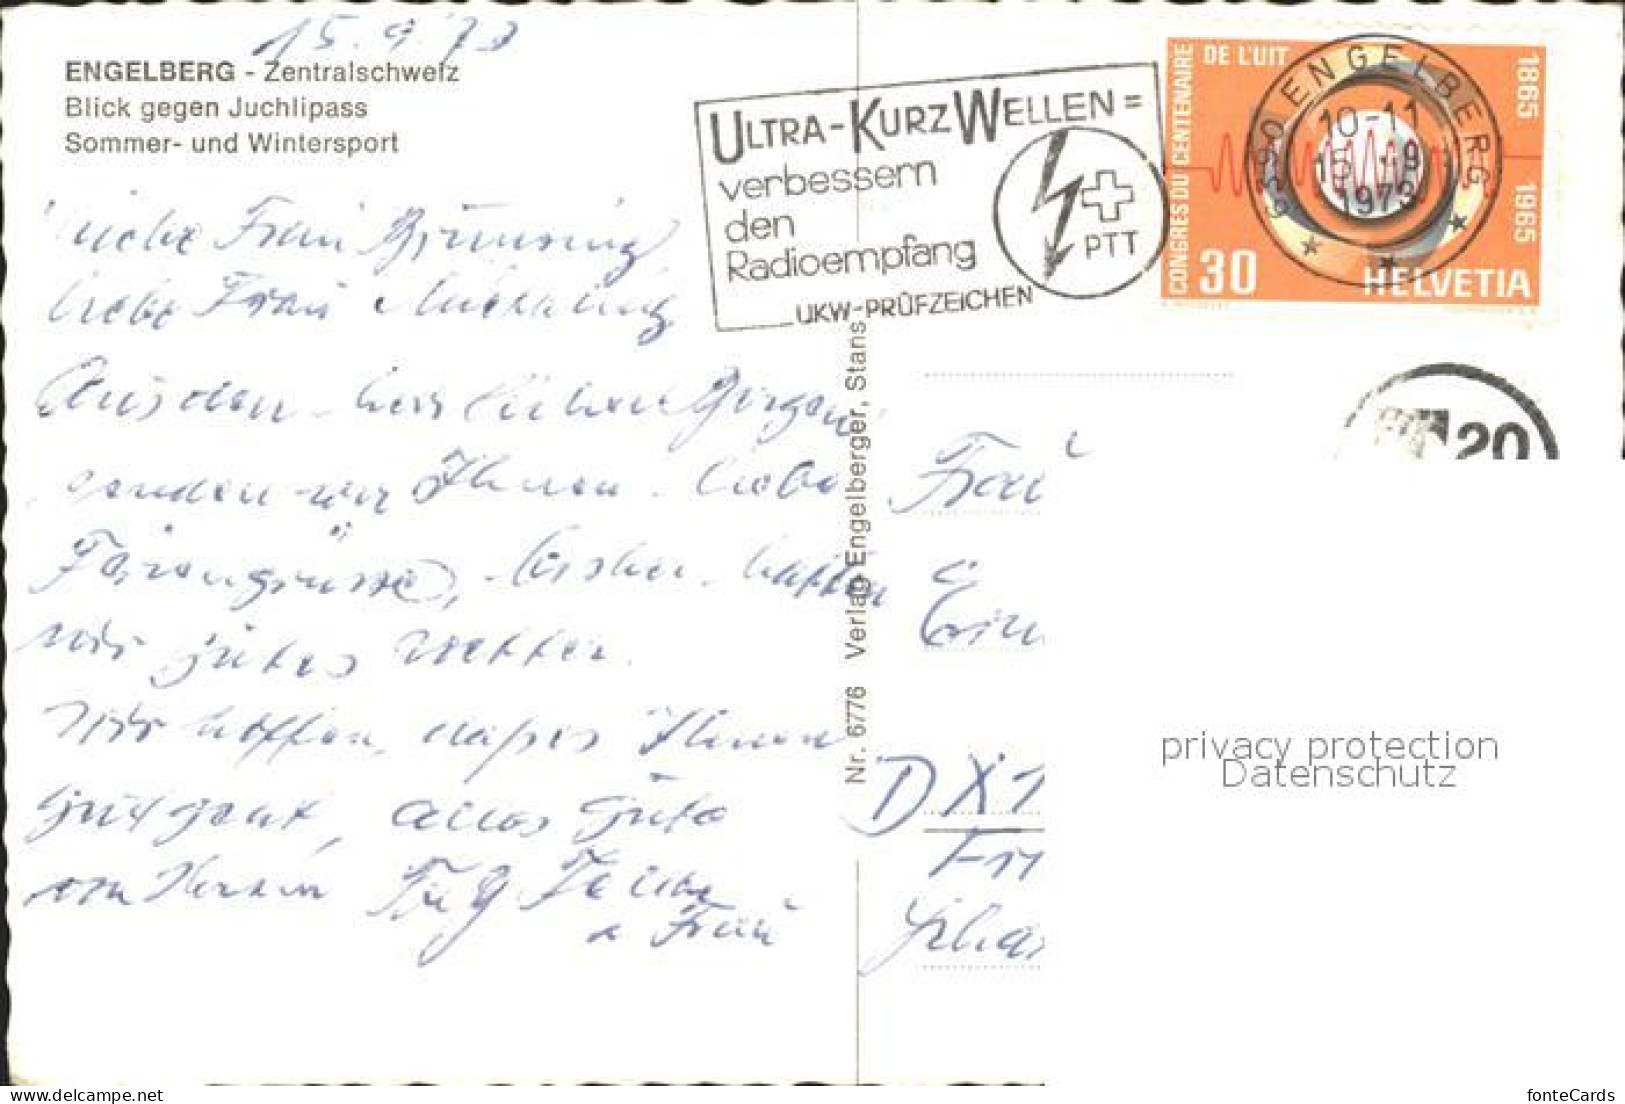 15.9.73
ENGELBERG - Zentralschweiz
Blick gegen Juchlipass
Sommer- und Wintersport
ULTRA-KURZ WELLEN =
verbessern
den
Radioempfang
UKW-PRÜFZEICHEN
PTT
CONGRES DU CENTENAIRE
DE L'UIT
1865 1965
30
HELVETIA
6390 ENGELBERG
10-11
15.-9
1973
20
Liebe Frau
liebe Frau
Aus den herrlichen Bergen
senden wir Ihnen liebe
Feriengrüsse, bisher hatten
wir gutes Wetter.
Wir hoffen, dass es Ihnen
gut geht, alles Gute
von Herrn
u Frau
Nr. 6776 Verlag Engelberger, Stans
Frau
D
privacy protection
Datenschutz
fonteCards